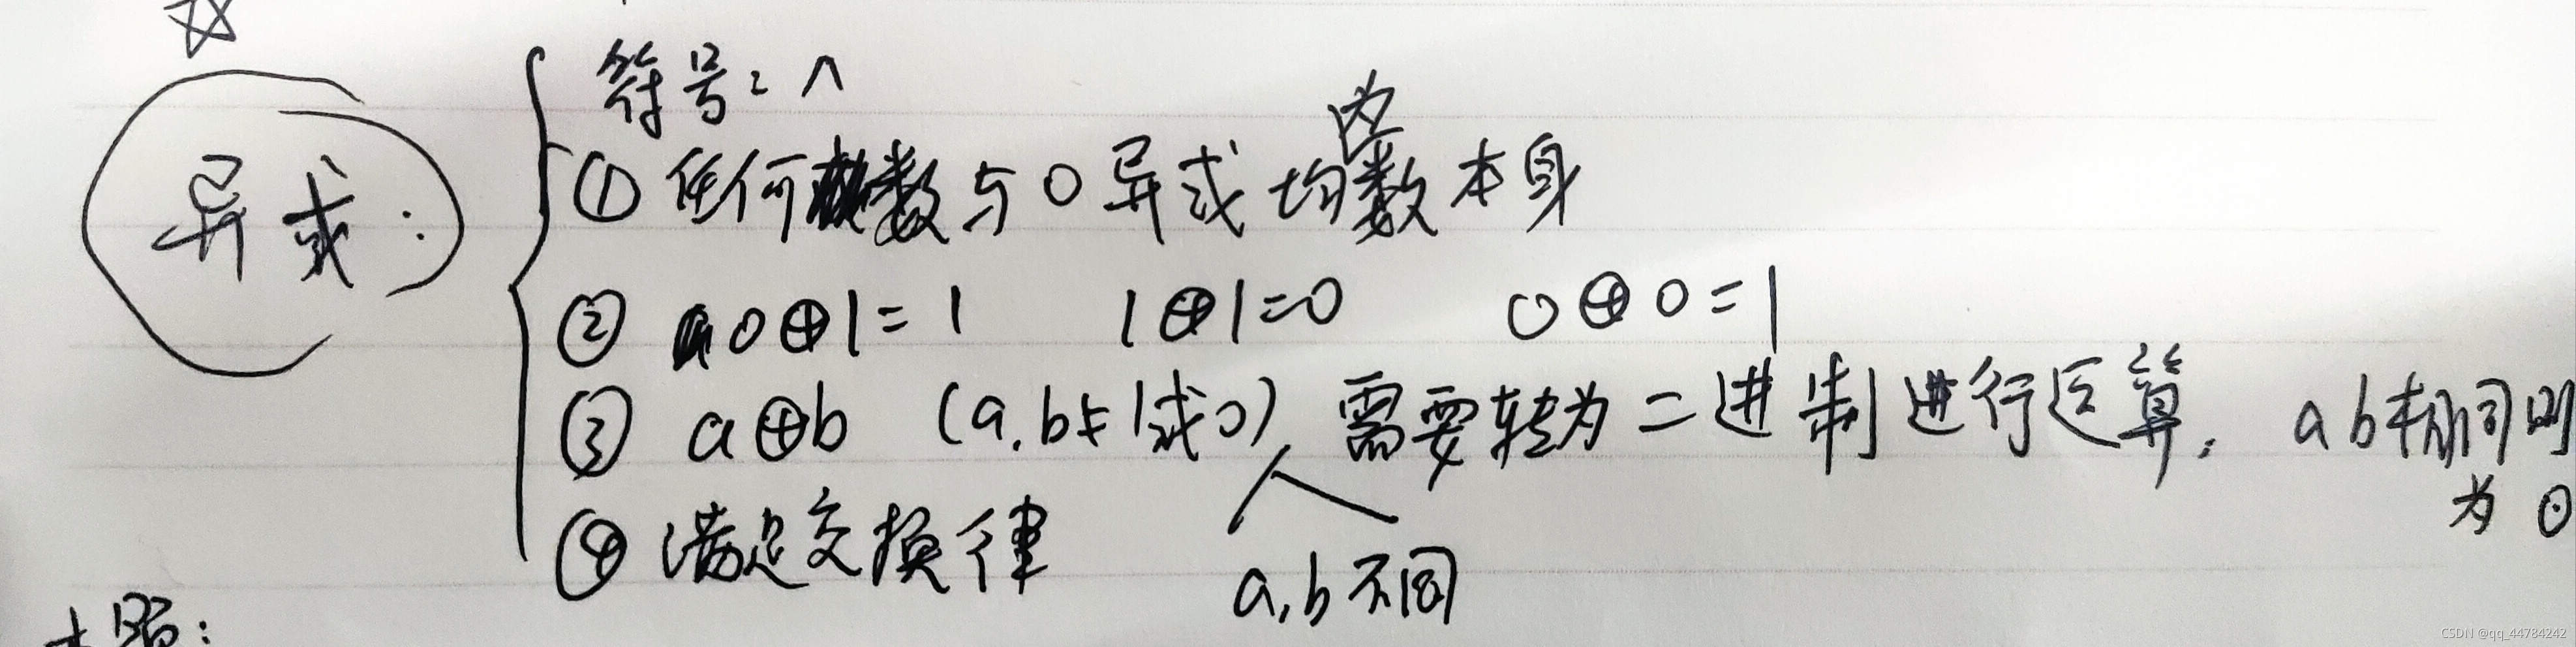 异或:
符号: ^
① 任何数与0异或均为数本身
② 0⊕1=1 1⊕1=0 0⊕0=1
③ a⊕b (a,b≠1或0) 需要转为二进制进行运算, ab相同则为0
a,b不同
④ 满足交换律
本题:
CSDN @qq_44784242